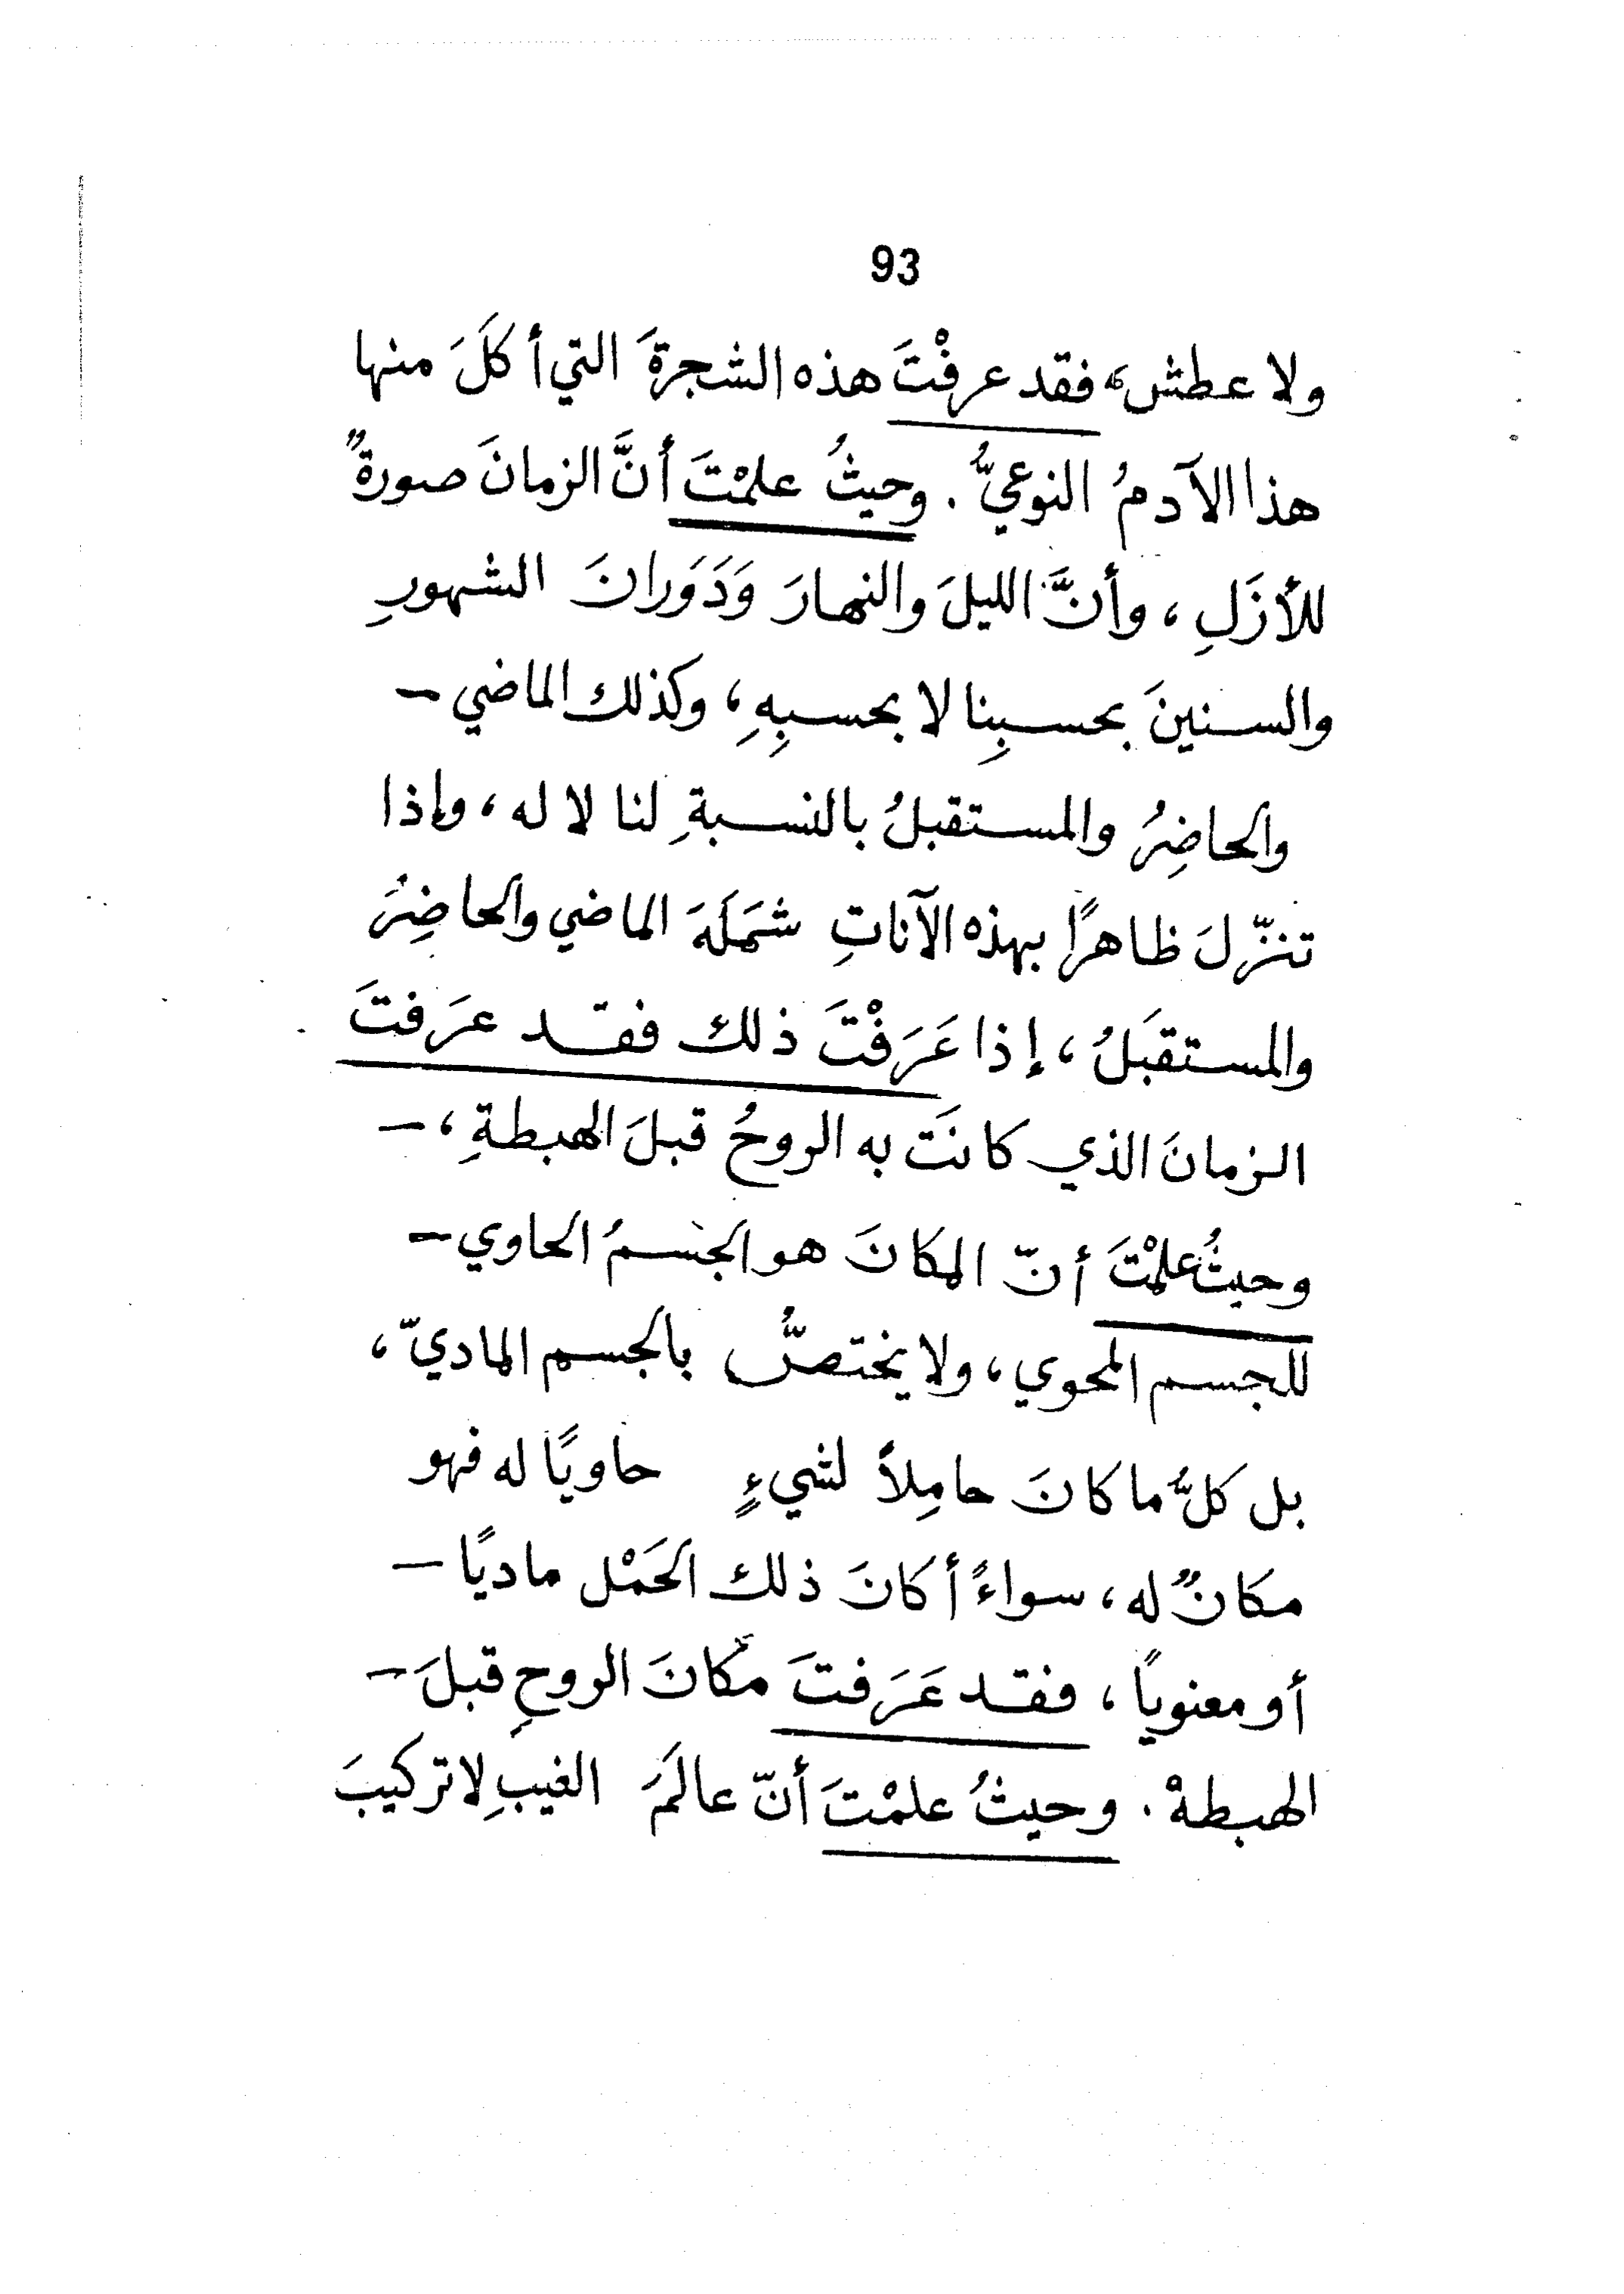 93
ولا عطش، فقد عرفْتَ هذه الشجرةَ التي أكلَ منها
هذا الآدمُ النوعيُّ. وحيثُ علمْتَ أنَّ الزمانَ صورةٌ
للأزَلِ، وأنَّ الليلَ والنهارَ وَدَوَرانَ الشهورِ
والسنينَ بحسبِنا لا بحسبِهِ، وكذلك الماضي –
والحاضِرُ والمستقبلُ بالنسبةِ لنا لا له، وإذا
تنزّلَ ظاهرًا بهذه الآناتِ شمَلَهَ الماضي والحاضِرُ
والمستقبَلُ، إذا عَرَفْتَ ذلك فقد عرَفتَ
الزمانَ الذي كانَت به الروحُ قبلَ الهبطةِ، –
وحيثُ علمْتَ أنّ المكانَ هو الجسمُ الحاوي –
للجسم المحوي، ولا يختصُّ بالجسم الماديّ،
بل كلُّ ما كانَ حامِلاً لشيءٍ حاويًا له فهو
مكانٌ له، سواءً أكانَ ذلك الحَمْل ماديًا –
أو معنويًا، فقد عَرَفتَ مكانَ الروحِ قبلَ –
الهبطهْ. وحيثُ علمْتَ أنّ عالَمَ الغيبِ لا تركيبَ